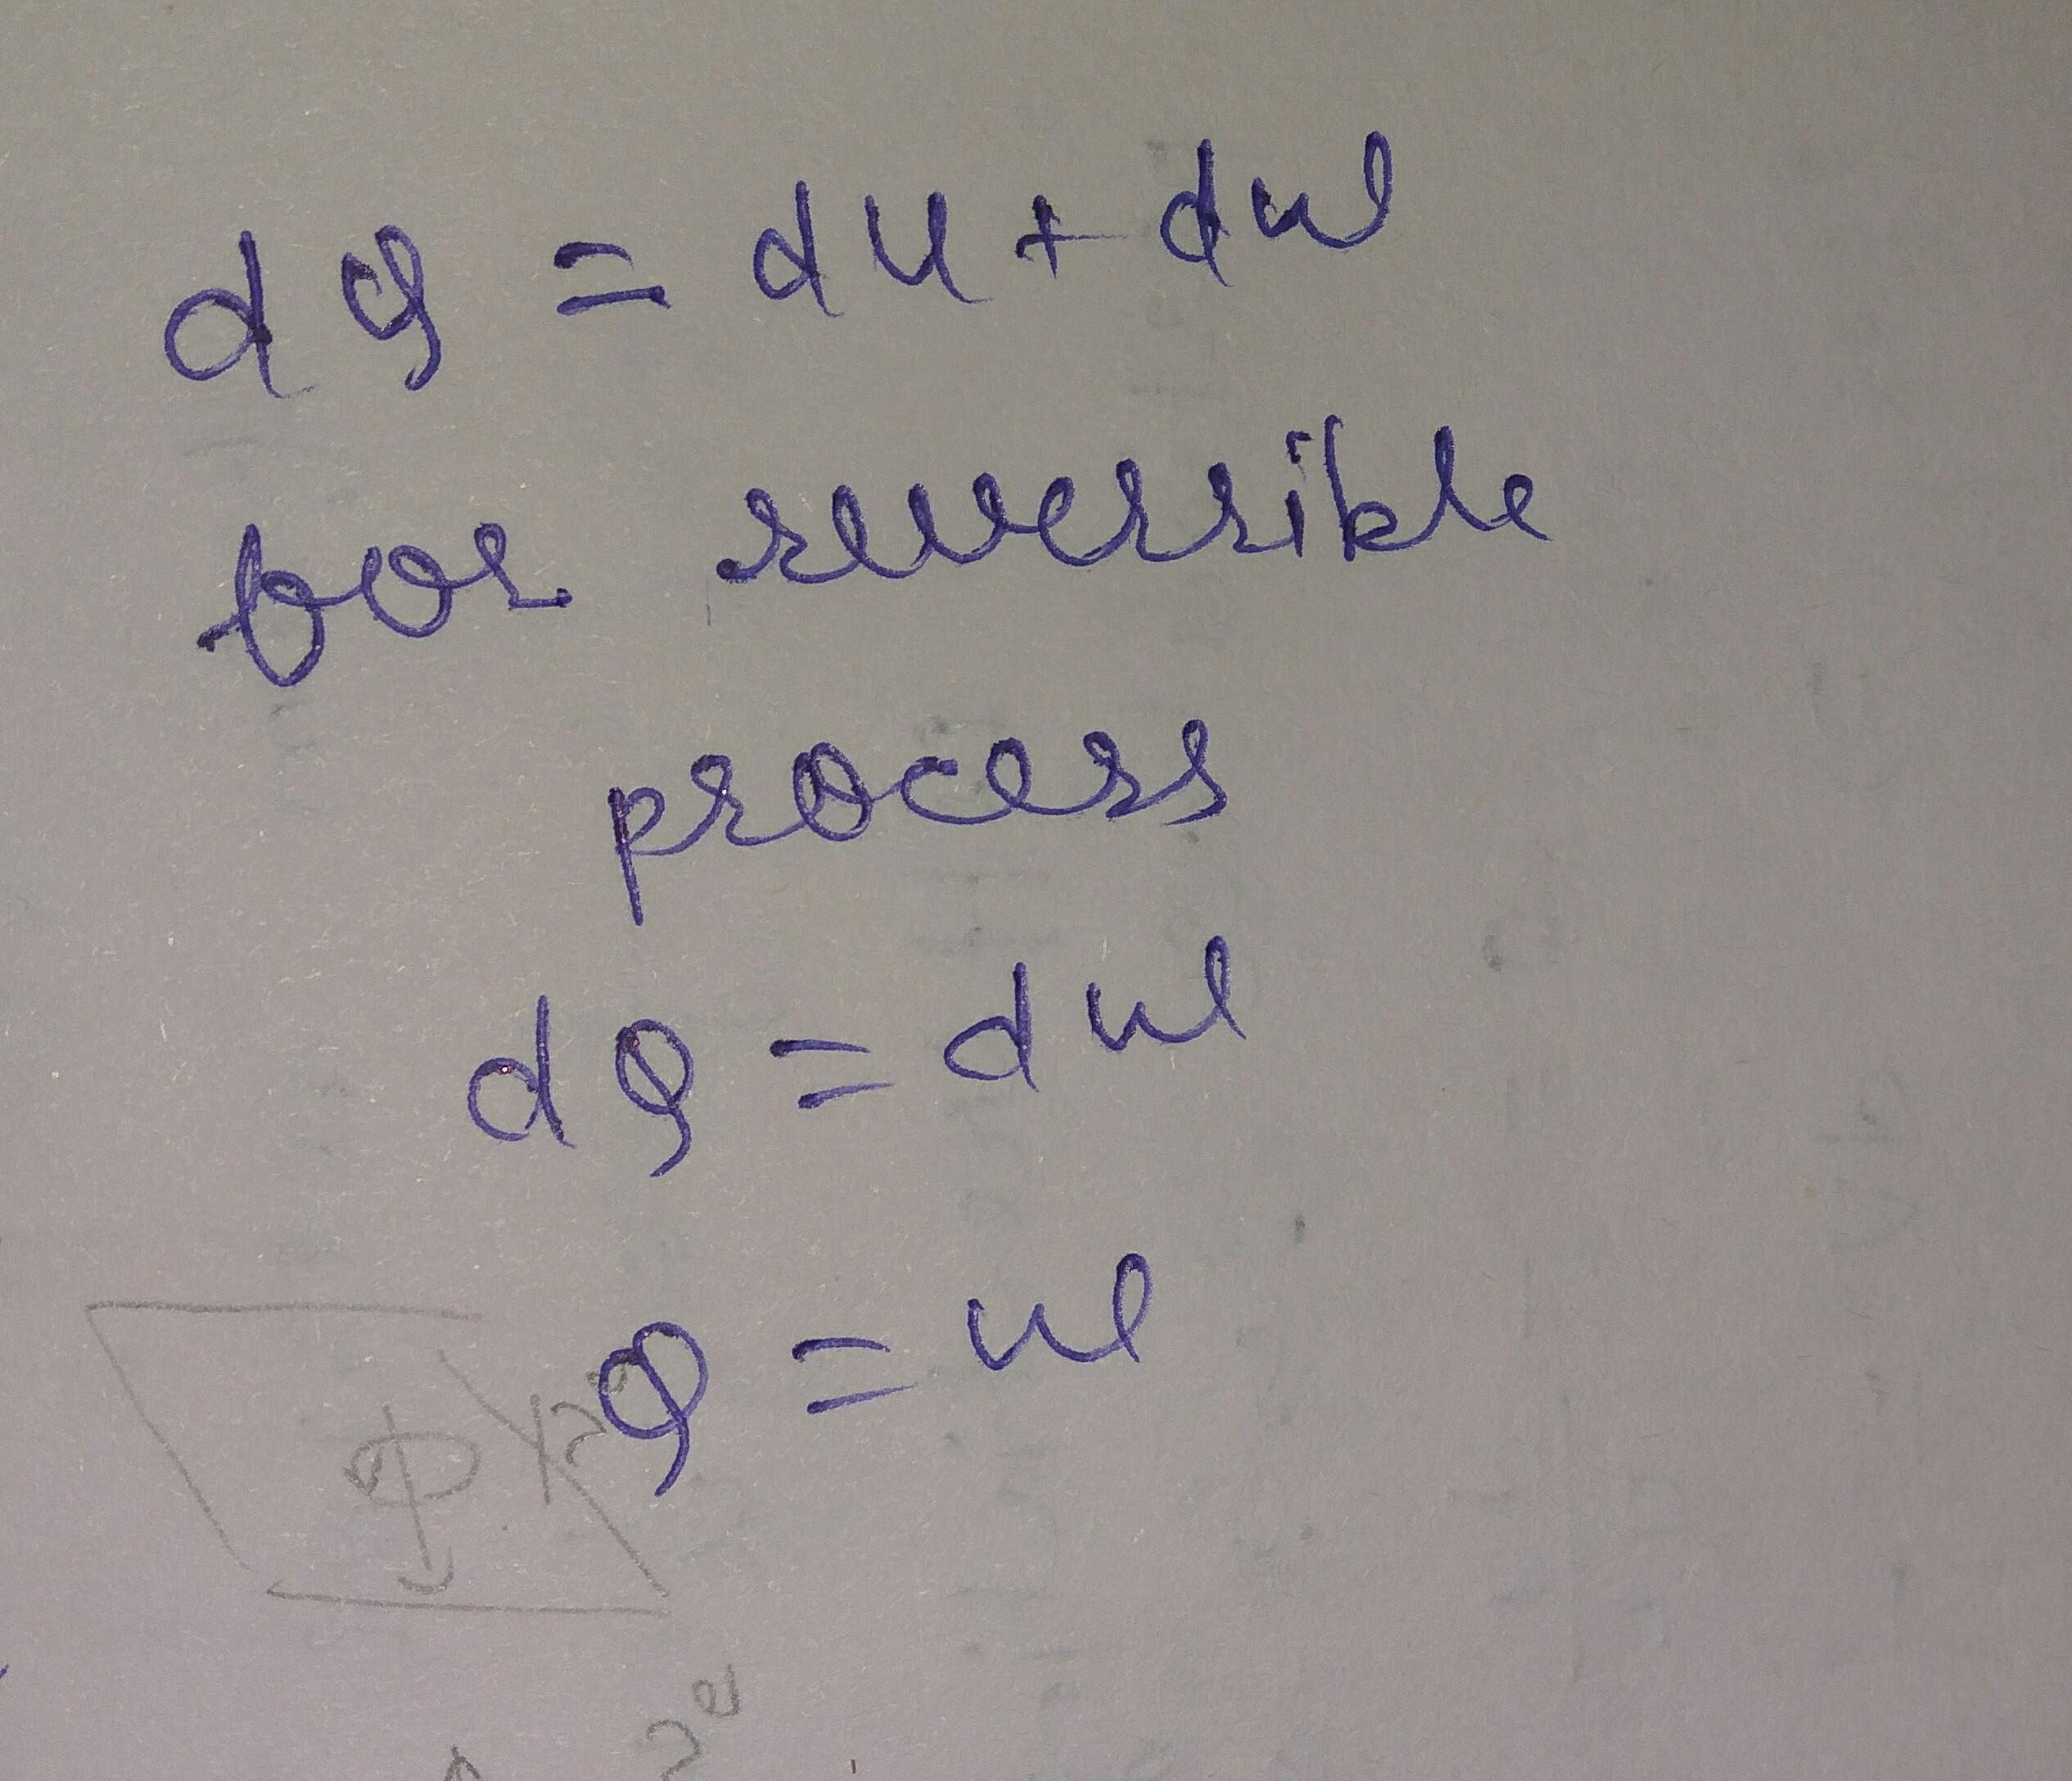 dQ = du + dw
for reversible
process
dQ = dw
Q = w